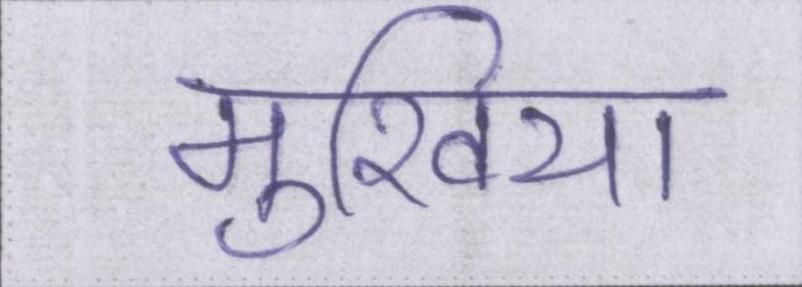 मुखिया